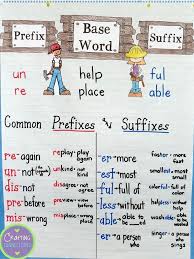 Prefix
Base Word
Suffix
un help ful
re place able
Common Prefixes & Suffixes
re-again replay-play again
un-not unkind-not kind
dis-not disagree-not agree
pre-before preview-view before
mis-wrong misplace-wrong place
-er-more faster-more fast
-est-most smallest-most small
-ful-full of colorful-full of color
-less-without
-able-able to be washable-able to be washed
-er-a person who singer-one who sings